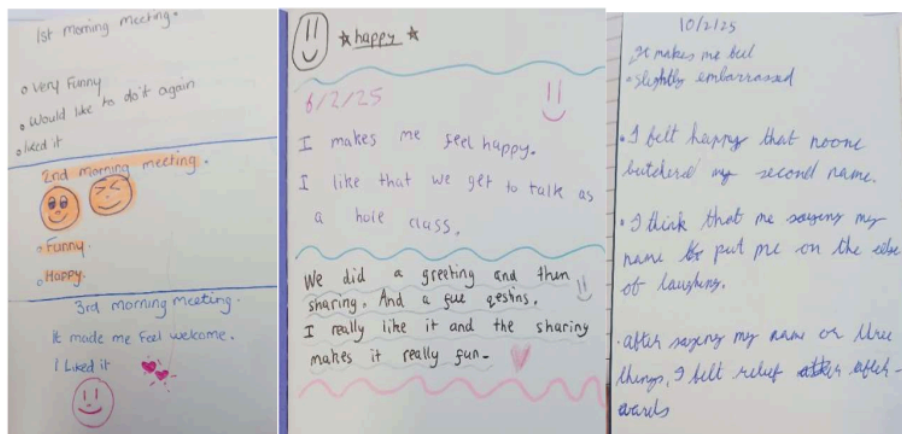 1st morning meeting.
o Very Funny
• Would like to do it again
o liked it
2nd morning meeting.
o Funny.
o Happy.
3rd morning meeting.
It made me Feel welcome.
I Liked it
☆ happy ☆
6/2/25
I makes me feel happy.
I like that we get to talk as
a hole class.
We did a greeting and then
sharing. And a fue qestins.
I really like it and the sharing
makes it really fun-
10/2/25
It makes me feel
• slightly embarrassed
• I felt happy that noone
butcherd my second name.
• I think that me saying my
name put me on the
of laughing.
• after saying my name or three
things, I felt relief after-
wards